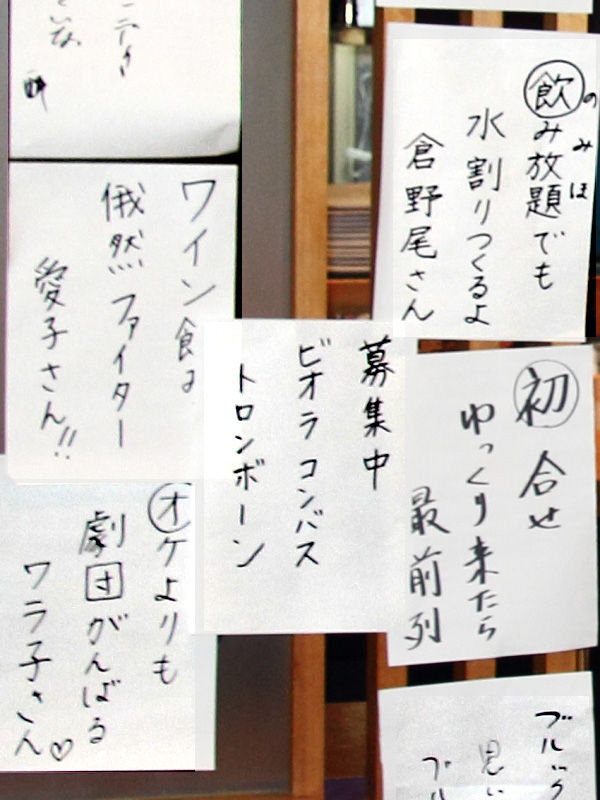 飲み放題でも
のみほ
水割りつくるよ
倉野尾さん
初合せ
ゆっくり来たら
最前列
ブルック
思い
ブル
募集中
ビオラコンバス
トロンボーン
ワイン館よ
俄然ファイター
愛子さん!!
オケよりも
劇団がんばる
ワラ子さん♡